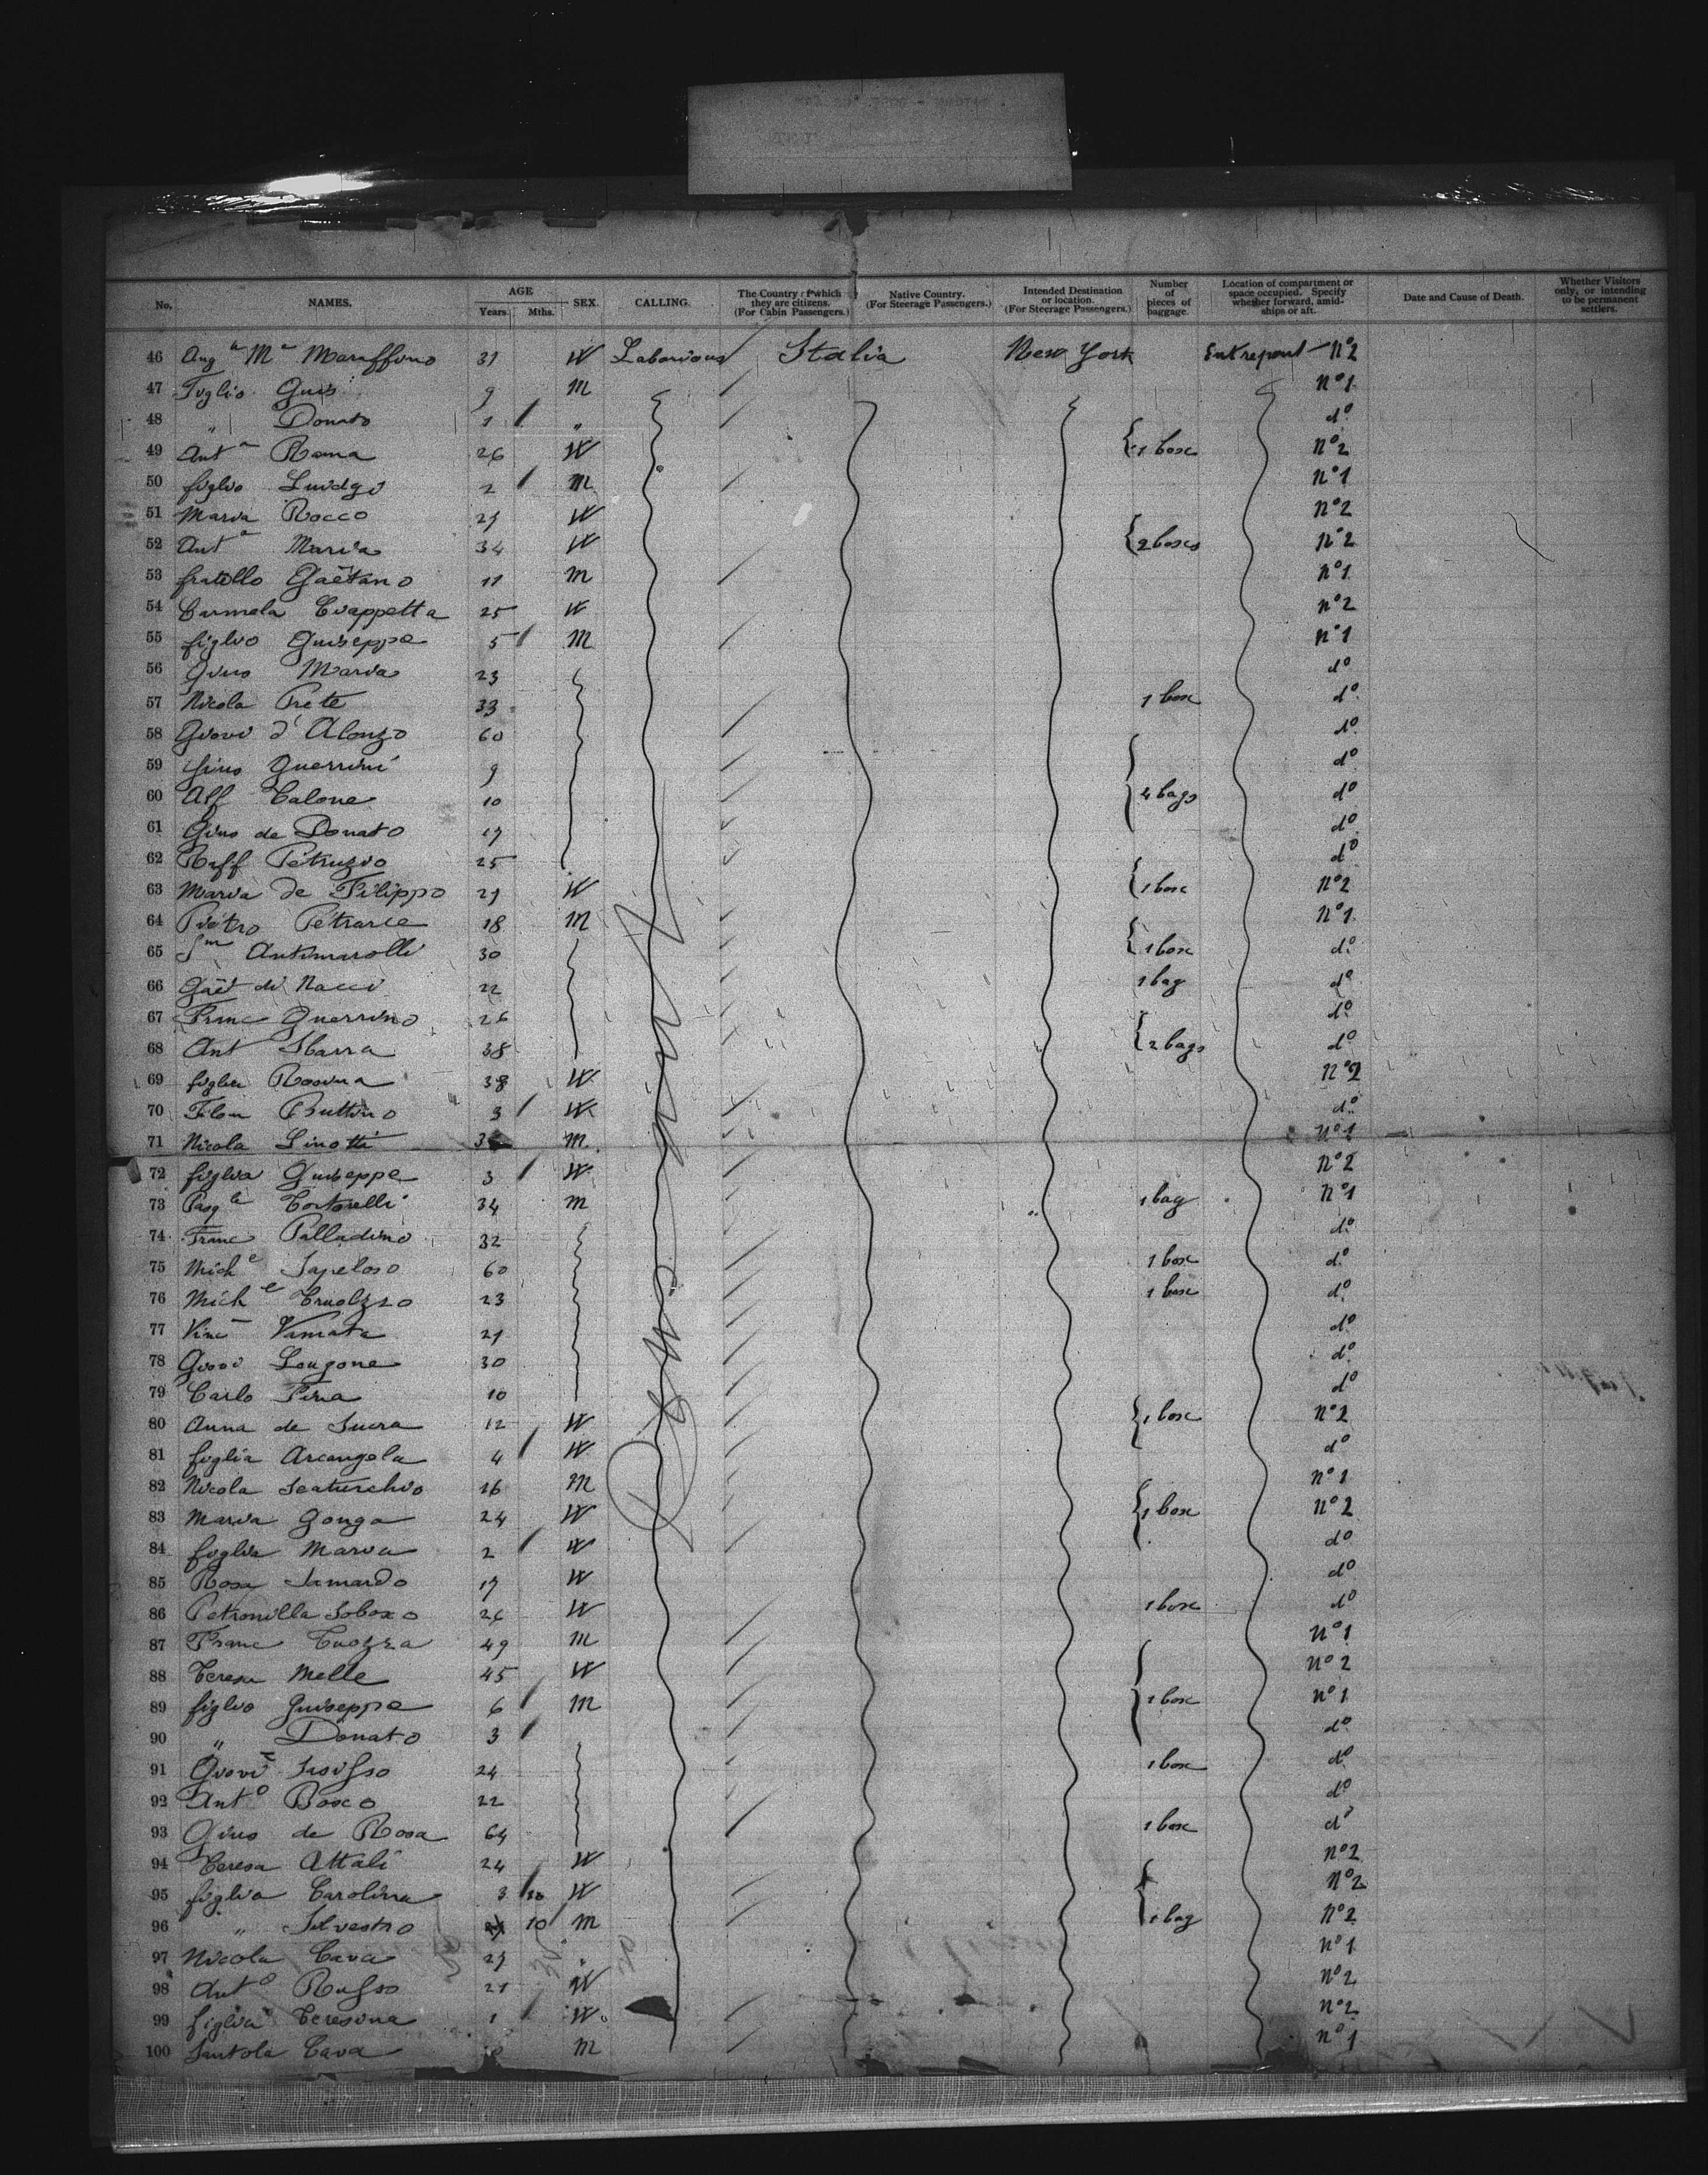 No. NAMES. AGE Years. Mths. SEX. CALLING. The Country of which they are citizens. (For Cabin Passengers.) Native Country. (For Steerage Passengers.) Intended Destination or location. (For Steerage Passengers.) Number of pieces of baggage. Location of compartment or space occupied. Specify whether forward, amidships or aft. Date and Cause of Death. Whether Visitors only, or intending to be permanent settlers.
46 Ang a M a Maraffino 31 W Laborious Italia New York Entrepont N°2
47 Figlio Gius 9 M N°1
48 " Donato 1 " d°
49 Ant a Roma 26 W 1 box N°2
50 figlio Luidgi 2 M N°1
51 Maria Rocco 27 W N°2
52 Ant a Maria 34 W 2 boxes N°2
53 fratello Gaëtano 11 M N°1
54 Carmela Ciappetta 25 W N°2
55 figlio Guiseppe 5 M N°1
56 Gius Maria 23 d°
57 Nicola Prete 33 1 box d°
58 Giovi d'Alonzo 60 d°
59 Gius Guerrini 9 d°
60 Alf Calone 10 4 bags d°
61 Gius de Donato 17 d°
62 Raff Petruzio 25 d°
63 Maria de Filippo 21 W 1 box N°2
64 Pietro Petrarce 18 M N°1
65 Antimarolli 30 1 box d°
66 Gaët di Nacci 22 1 bag d°
67 Franc Guerrino 26 d°
68 Ant Sbarra 38 2 bags d°
69 figlia Rosina 38 W N°2
70 Filom Buttino 3 W d°
71 Nicola Linotti M N°1
72 figlia Guiseppe 3 W N°2
73 Pasq le Tortorelli 34 M 1 bag N°1
74 Franc Palladino 32 d°
75 Mich e Sapeloso 60 1 box d°
76 Mich e 23 1 box d°
77 Vinc Vamata 21 d°
78 Giovi Longone 30 d°
79 Carlo Pina 10 d°
80 Anna de Sucra 12 W 1 box N°2
81 figlia Arcangela 4 W d°
82 Nicola Scaturchio 16 M N°1
83 Maria Gonga 24 W 1 box N°2
84 figlia Maria 2 W d°
85 Rosa Samardo 17 W d°
86 Petronilla Soboxo 26 W 1 box d°
87 Franc Cuozza 49 M N°1
88 Teresa Melle 45 W N°2
89 figlio Guiseppe 6 M 1 box N°1
90 " Donato 3 d°
91 Giovi 24 1 box d°
92 Ant o Bosco 22 d°
93 Gius de Rosa 64 1 box d°
94 Teresa Attali 24 W N°2
95 figlia Carolina 3 W N°2
96 " Silvestro 10 M 1 bag N°2
97 Nicola Cava 27 " N°1
98 Ant o Russo 21 W N°2
99 figlia Teresina 1 W N°2
100 Santola Cava M N°1